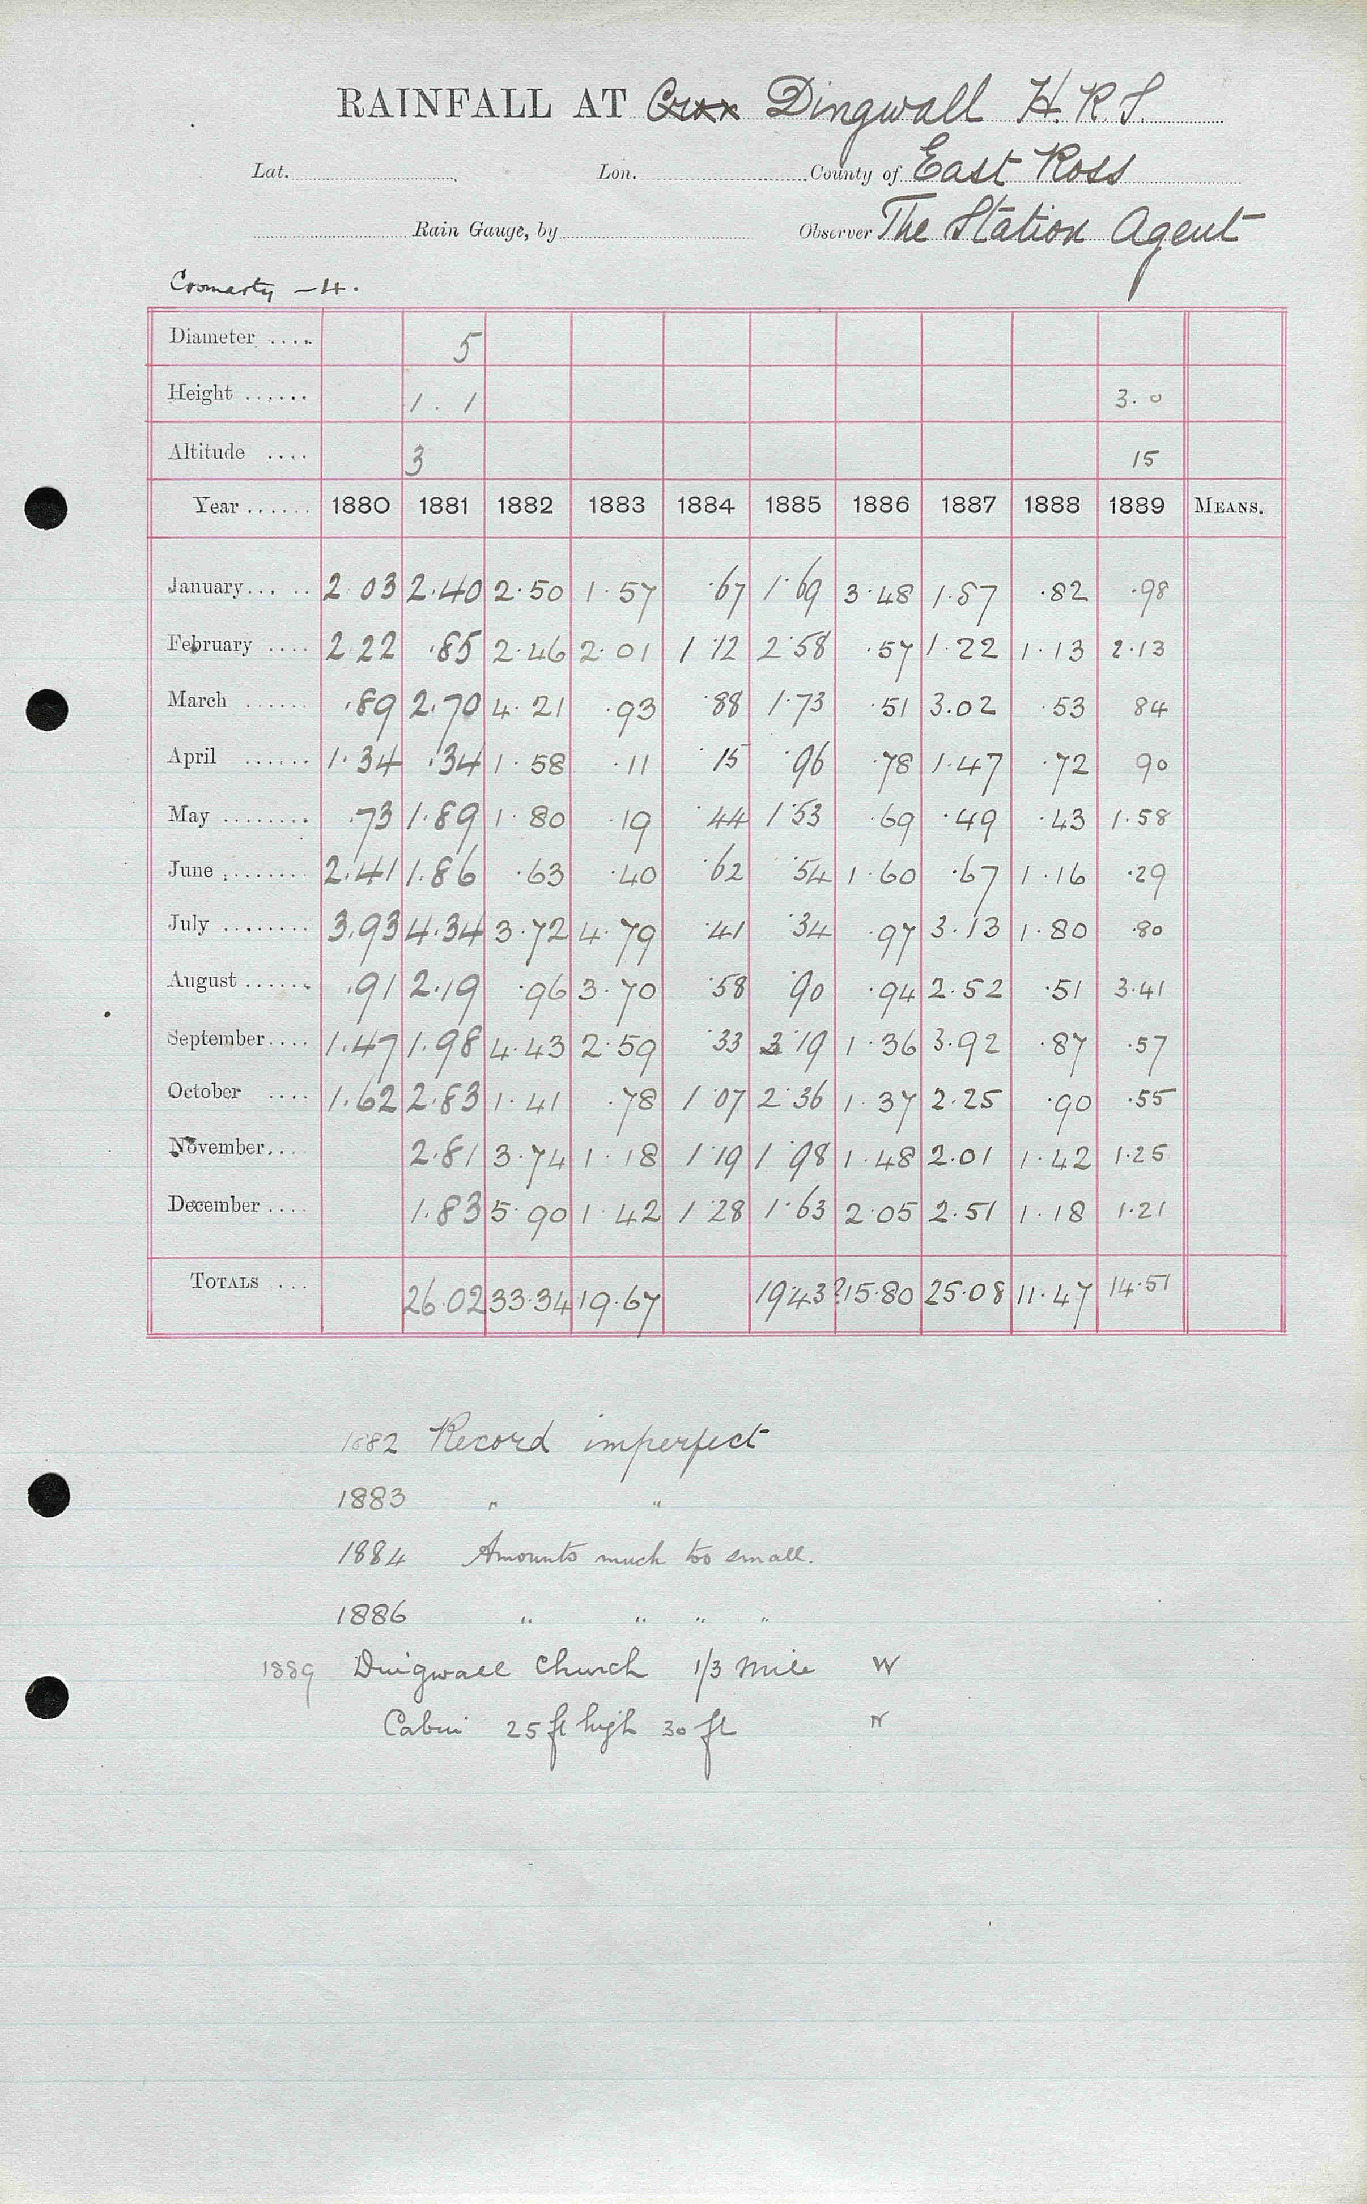 RAINFALL AT Dingwall H.R.S.
Lat. Lon. County of East Ross
Rain Gauge, by Observer The Station Agent
Cromarty – 4.
Diameter .... 5
Height ...... 1. 1 3.0
Altitude .... 3 15
Year ...... 1880 1881 1882 1883 1884 1885 1886 1887 1888 1889 MEANS.
January ...... 2.03 2.40 2.50 1.57 .67 1.69 3.48 1.87 .82 .98
February .... 2.22 .85 2.46 2.01 1.12 2.58 .57 1.22 1.13 2.13
March ...... .89 2.70 4.21 .93 .88 1.73 .51 3.02 .53 84
April ...... 1.34 .34 1.58 .11 .15 .96 .78 1.47 .72 90
May ........ .73 1.89 1.80 .19 .44 1.53 .69 .49 .43 1.58
June ........ 2.41 1.86 .63 .40 .62 .54 1.60 .67 1.16 .29
July ........ 3.93 4.34 3.72 4.79 .41 .34 .97 3.13 1.80 .80
August ...... .91 2.19 .96 3.70 .58 .90 .94 2.52 .51 3.41
September .... 1.47 1.98 4.43 2.59 .33 3.19 1.36 3.92 .87 .57
October .... 1.62 2.83 1.41 .78 1.07 2.36 1.37 2.25 .90 .55
November .... 2.81 3.74 1.18 1.19 1.98 1.48 2.01 1.42 1.25
December .... 1.83 5.90 1.42 1.28 1.63 2.05 2.51 1.18 1.21
TOTALS ... 26.02 33.34 19.67 19.43? 15.80 25.08 11.47 14.51
1882 Record imperfect
1883 " "
1884 Amounts much too small.
1886 " " " "
1889 Dingwall Church 1/3 mile W
Cabin 25 ft high 30 ft N